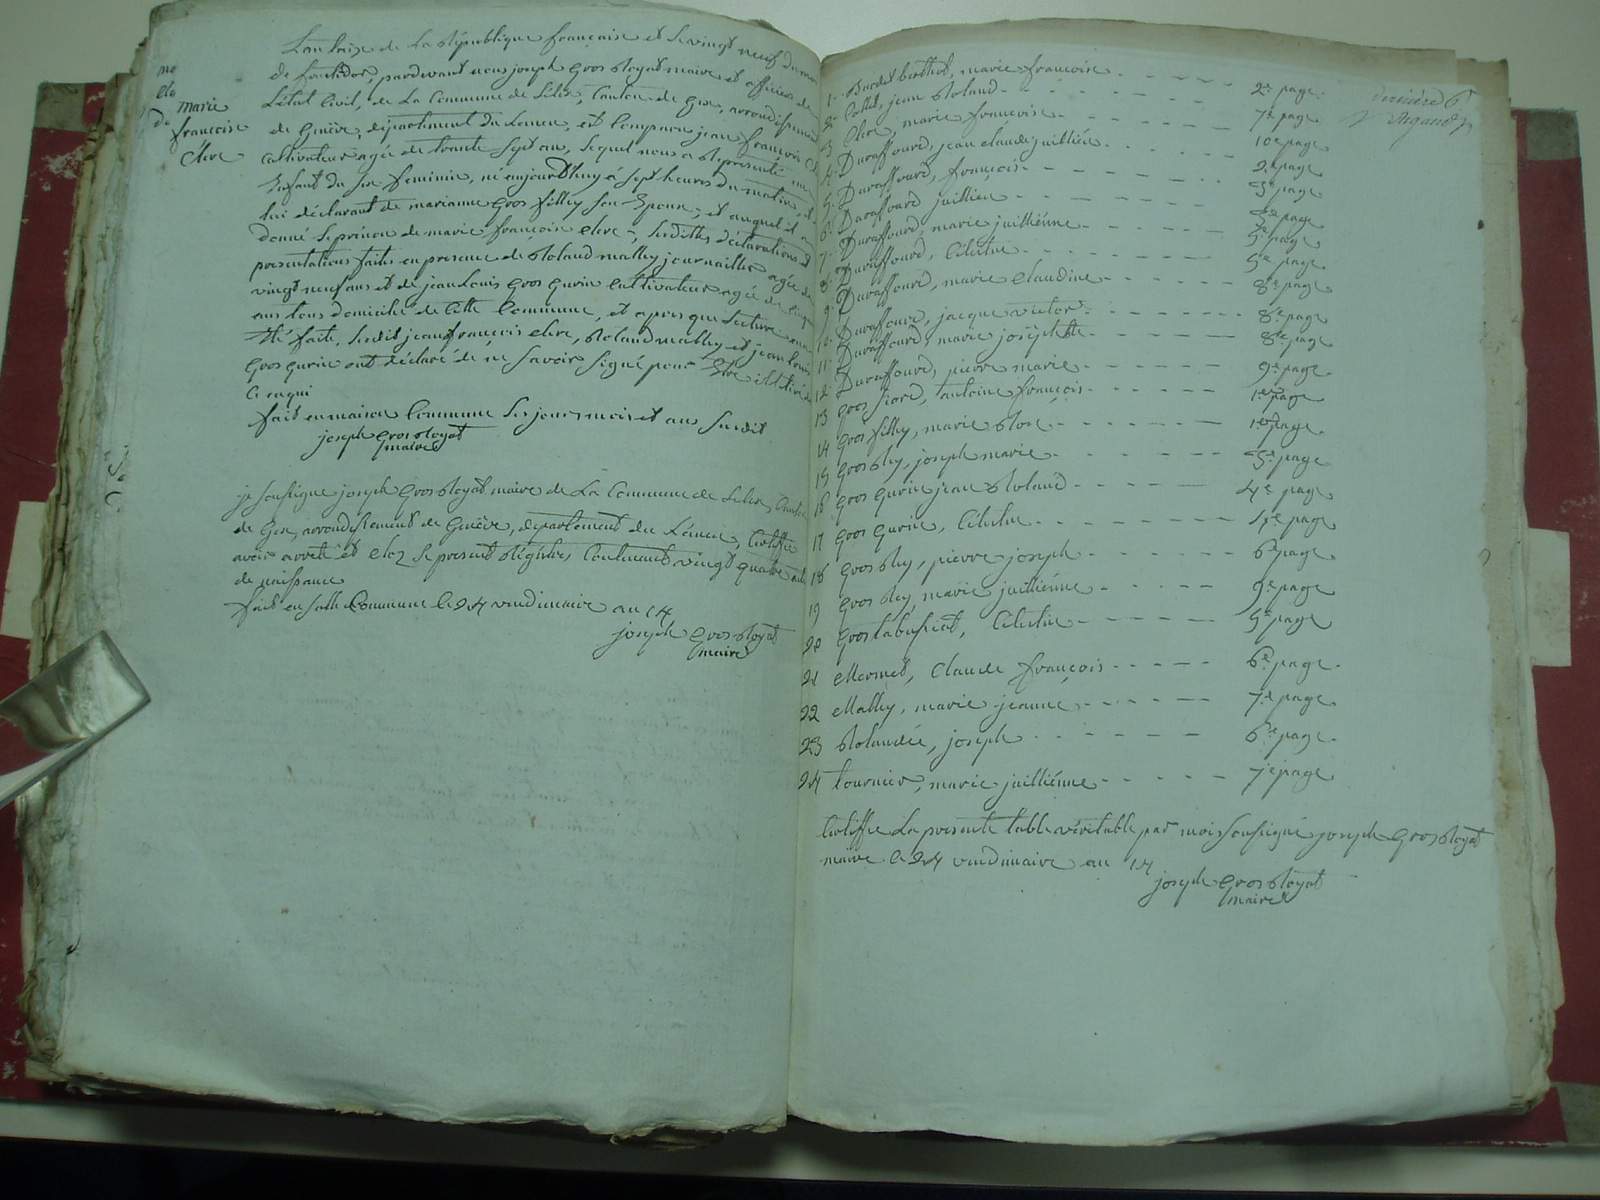 marie
françoise
Clerc
L'an treize de la République française et le vingt neuf du mois
de fructidor, pardevant nous joseph Gros Royat maire et officier de
L'état Civil, de La Commune de Lelex, Canton de Gex, arrondissement
de Genève, département du Léman, est Comparu jean françois Clerc
Cultivateur agée de trente sept ans, Lequel nous a Représenté un
Enfant du sex feminin, né aujourd'huy à sept heures du matin, de
lui déclarant de marianne Gros filley son Epouse, et auquel il a
donné le prénom de marie françoise Clerc, Lesdittes déclarations et
présentations faites en presence de Roland malley journaillier agée de
vingt neuf ans et de jean Louis Gros Gurin Cultivateur agée de
ans tous domicilié de Cette Commune, et apres que Lecture
Eté faite, Ledit jean françois Clerc, Roland malley et jean Louis
Gros Gurin ont déclaré de ne Savoir Signé pour Etre illitéré
Ce enqui
fait en maison Commune Les jours mois et an Susdit
joseph Gros Royat
maire
je soussigne joseph Gros Royat maire de La Commune de Lelex, Canton
de Gex, arrondissement de Genève, département du Léman, Certiffie
avoir arreté et Cloz Le present Régistre, Contenant vingt quatre actes
de naissance
fait en salle Commune le 24 vindimaire an 14
joseph Gros Royat
maire
1. Burdet berthod, marie françoise 2e page
2. jean Roland 7e page
3. Clerc, marie françoise 10e page
4. Duraffourd, jean claude juillien 2e page
5. Duraffourd, françois 3e page
6. Duraffourd juillien 3e page
7. Duraffourd, marie juilliénne 5e page
8. Duraffourd, Célestin 5e page
9. Duraffourd, marie Claudine 8e page
10. Duraffourd, jacque victor 8e page
11. Duraffourd, marie josephte 8e page
12. Duraffourd, pierre marie 9e page
13 Gros fiord, antoine françois 1ere page
14 Gros filley, marie Rose 1ere page
15 Gros Rey, joseph marie 3e page
16 Gros Gurin jean Roland 4e page
17 Gros Gurin, Célestin 4e page
18 Gros Rey, pierre joseph 6e page
19 Gros Rey, marie juilliénne 9e page
20 Gros tabussiat, Célestin 5e page
21 Mermet, Claude françois 6e page
22 Malley, marie jeanne 7e page
23 Rolandée, joseph 6e page
24 tournier, marie juilliénne 7e page
Certiffie La presente table véritable par mois soussigné joseph Gros Royat
maire le 24 vindimaire an 14
joseph Gros Royat
maire